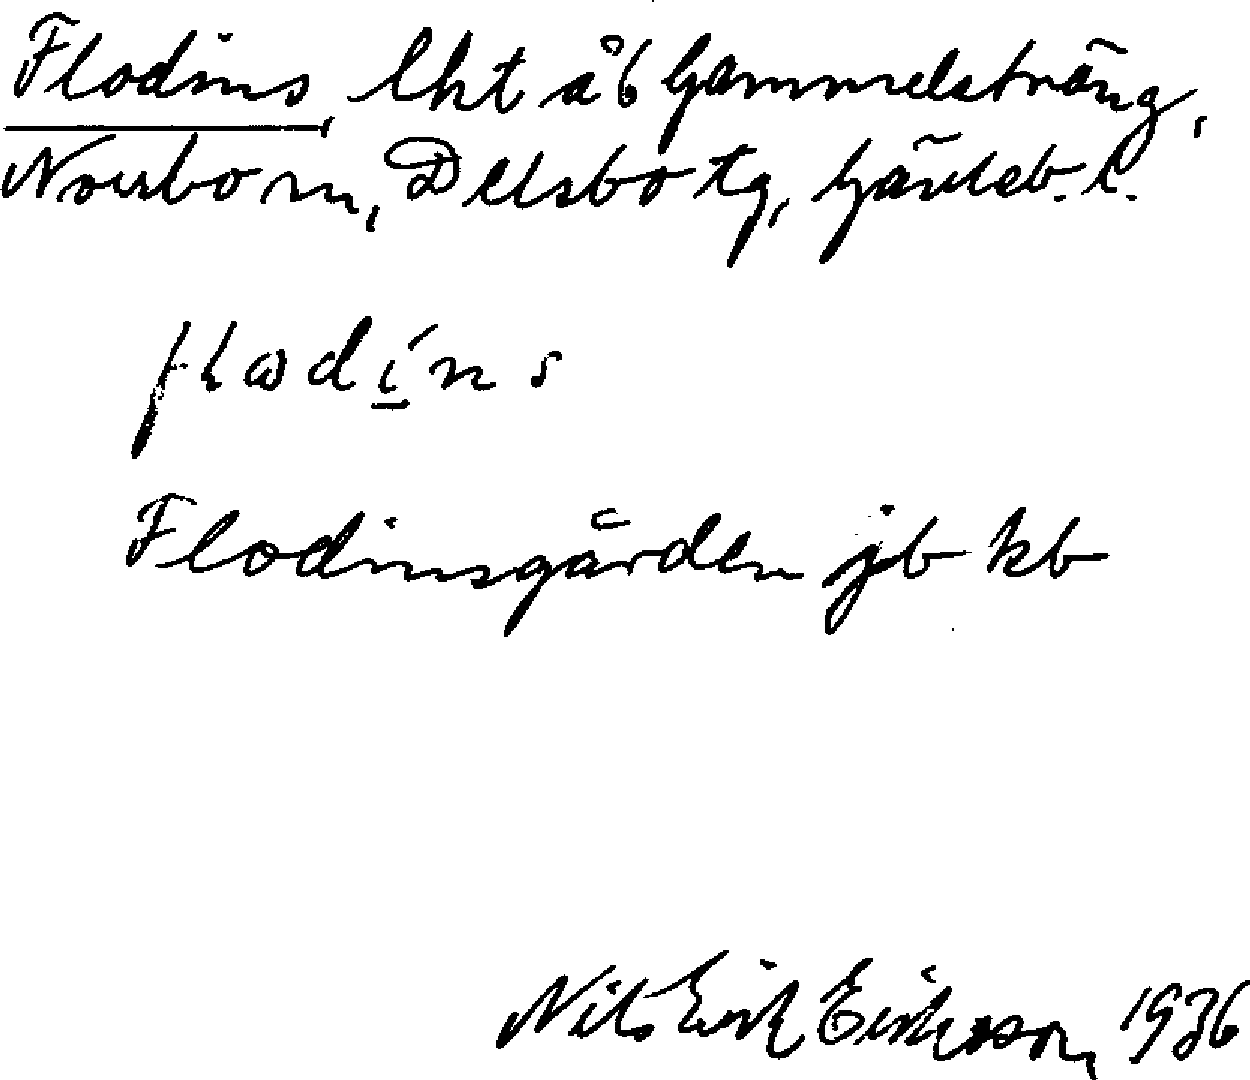 Flodins, lht å b Gammelsträng,
Norrbo sn, Delsbo tg, Gävleb. l.
flωdí̱n s
Flodinsgården jb kb
Nils Erik Eriksson, 1936